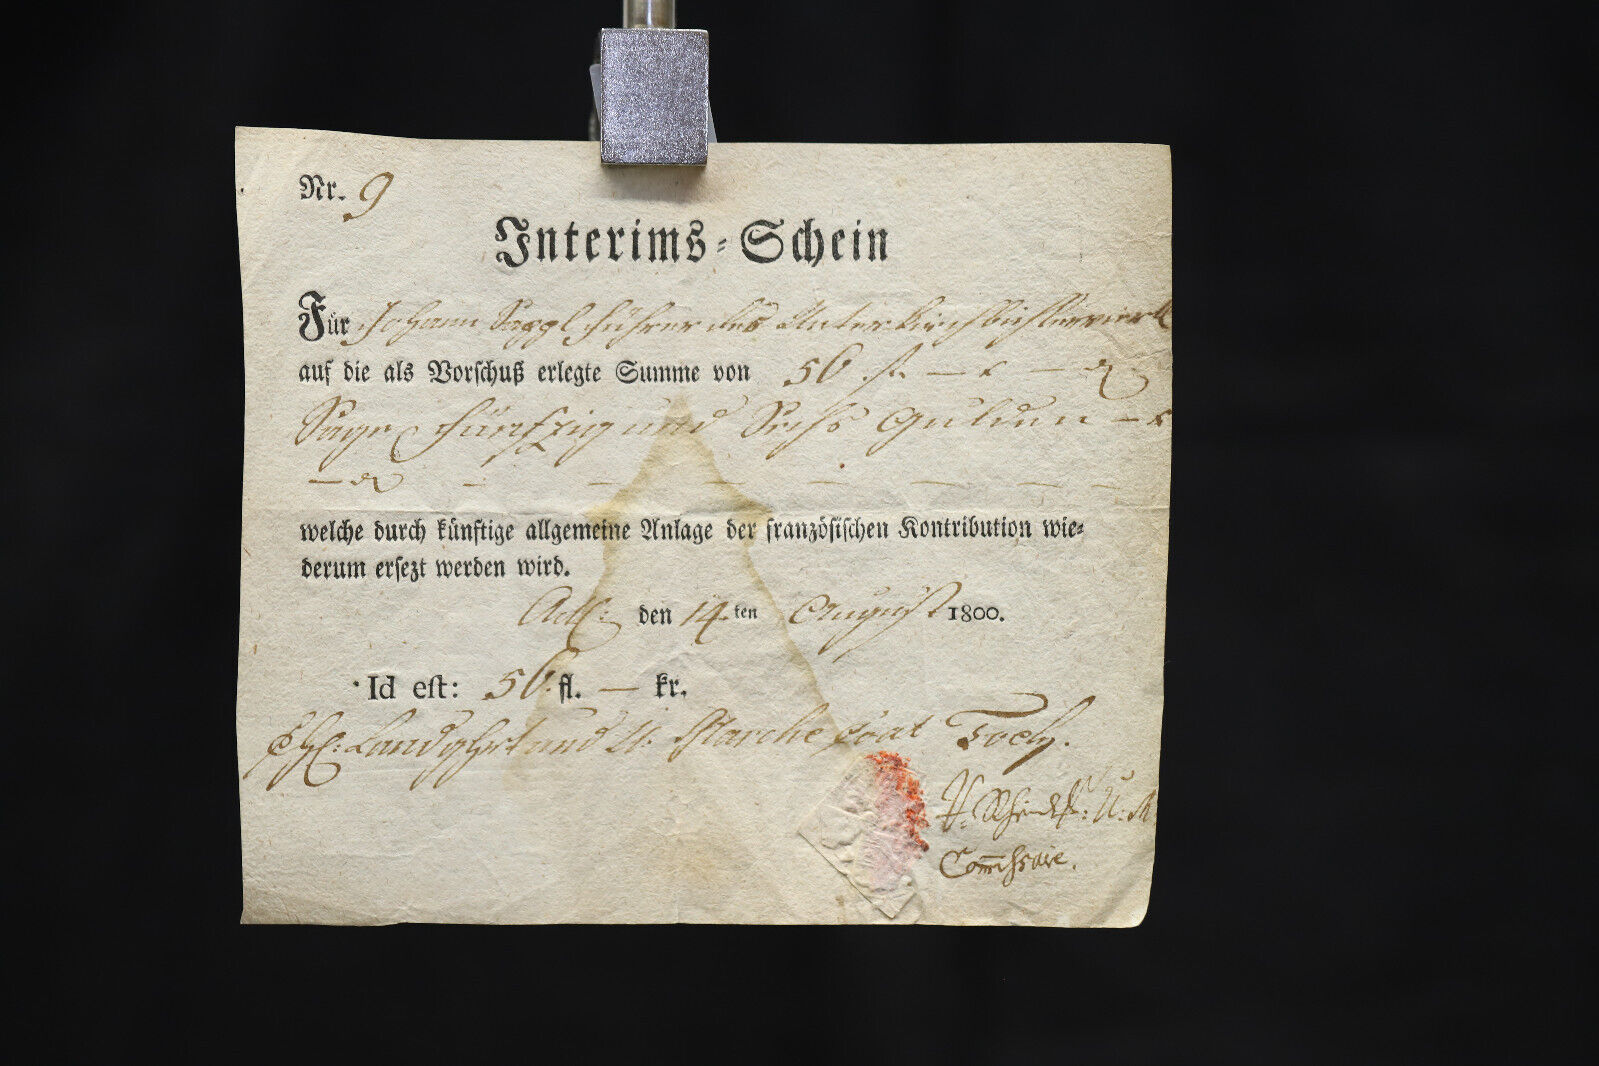 Nr. 9
Interims-Schein
Für Johann führer des
auf die als Vorschuß erlegte Summe von 56 f. — x — d
Sage fünfzig und Sechs Gulden — x
— d — — — — — — —
welche durch künftige allgemeine Anlage der französischen Kontribution wie-
derum ersezt werden wird.
Act: den 14.ten August 1800.
Id est: 56. fl. — kr.
Landghrt und U. Marche
U: M
Commissaire.